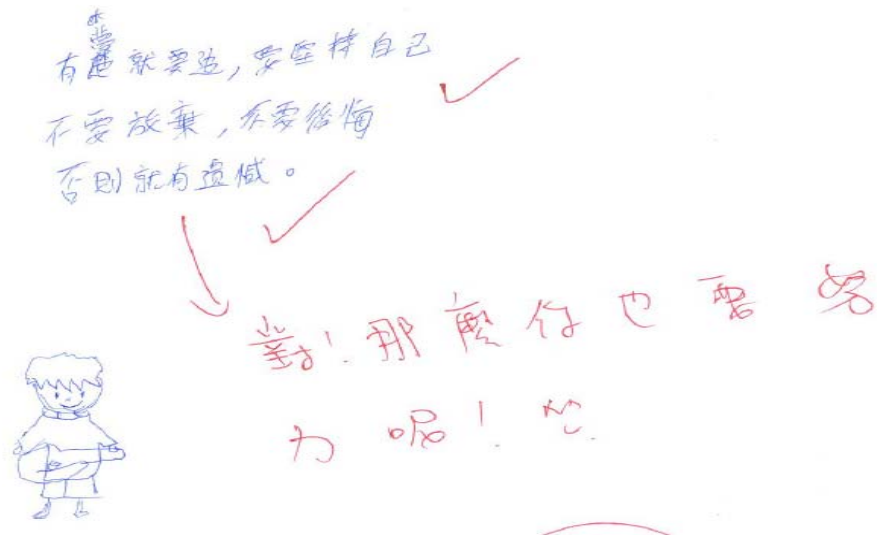 有夢就要追,要堅持自己
不要放棄,不要後悔
否則就有遺憾。
對!那麼你也要努
力呢!